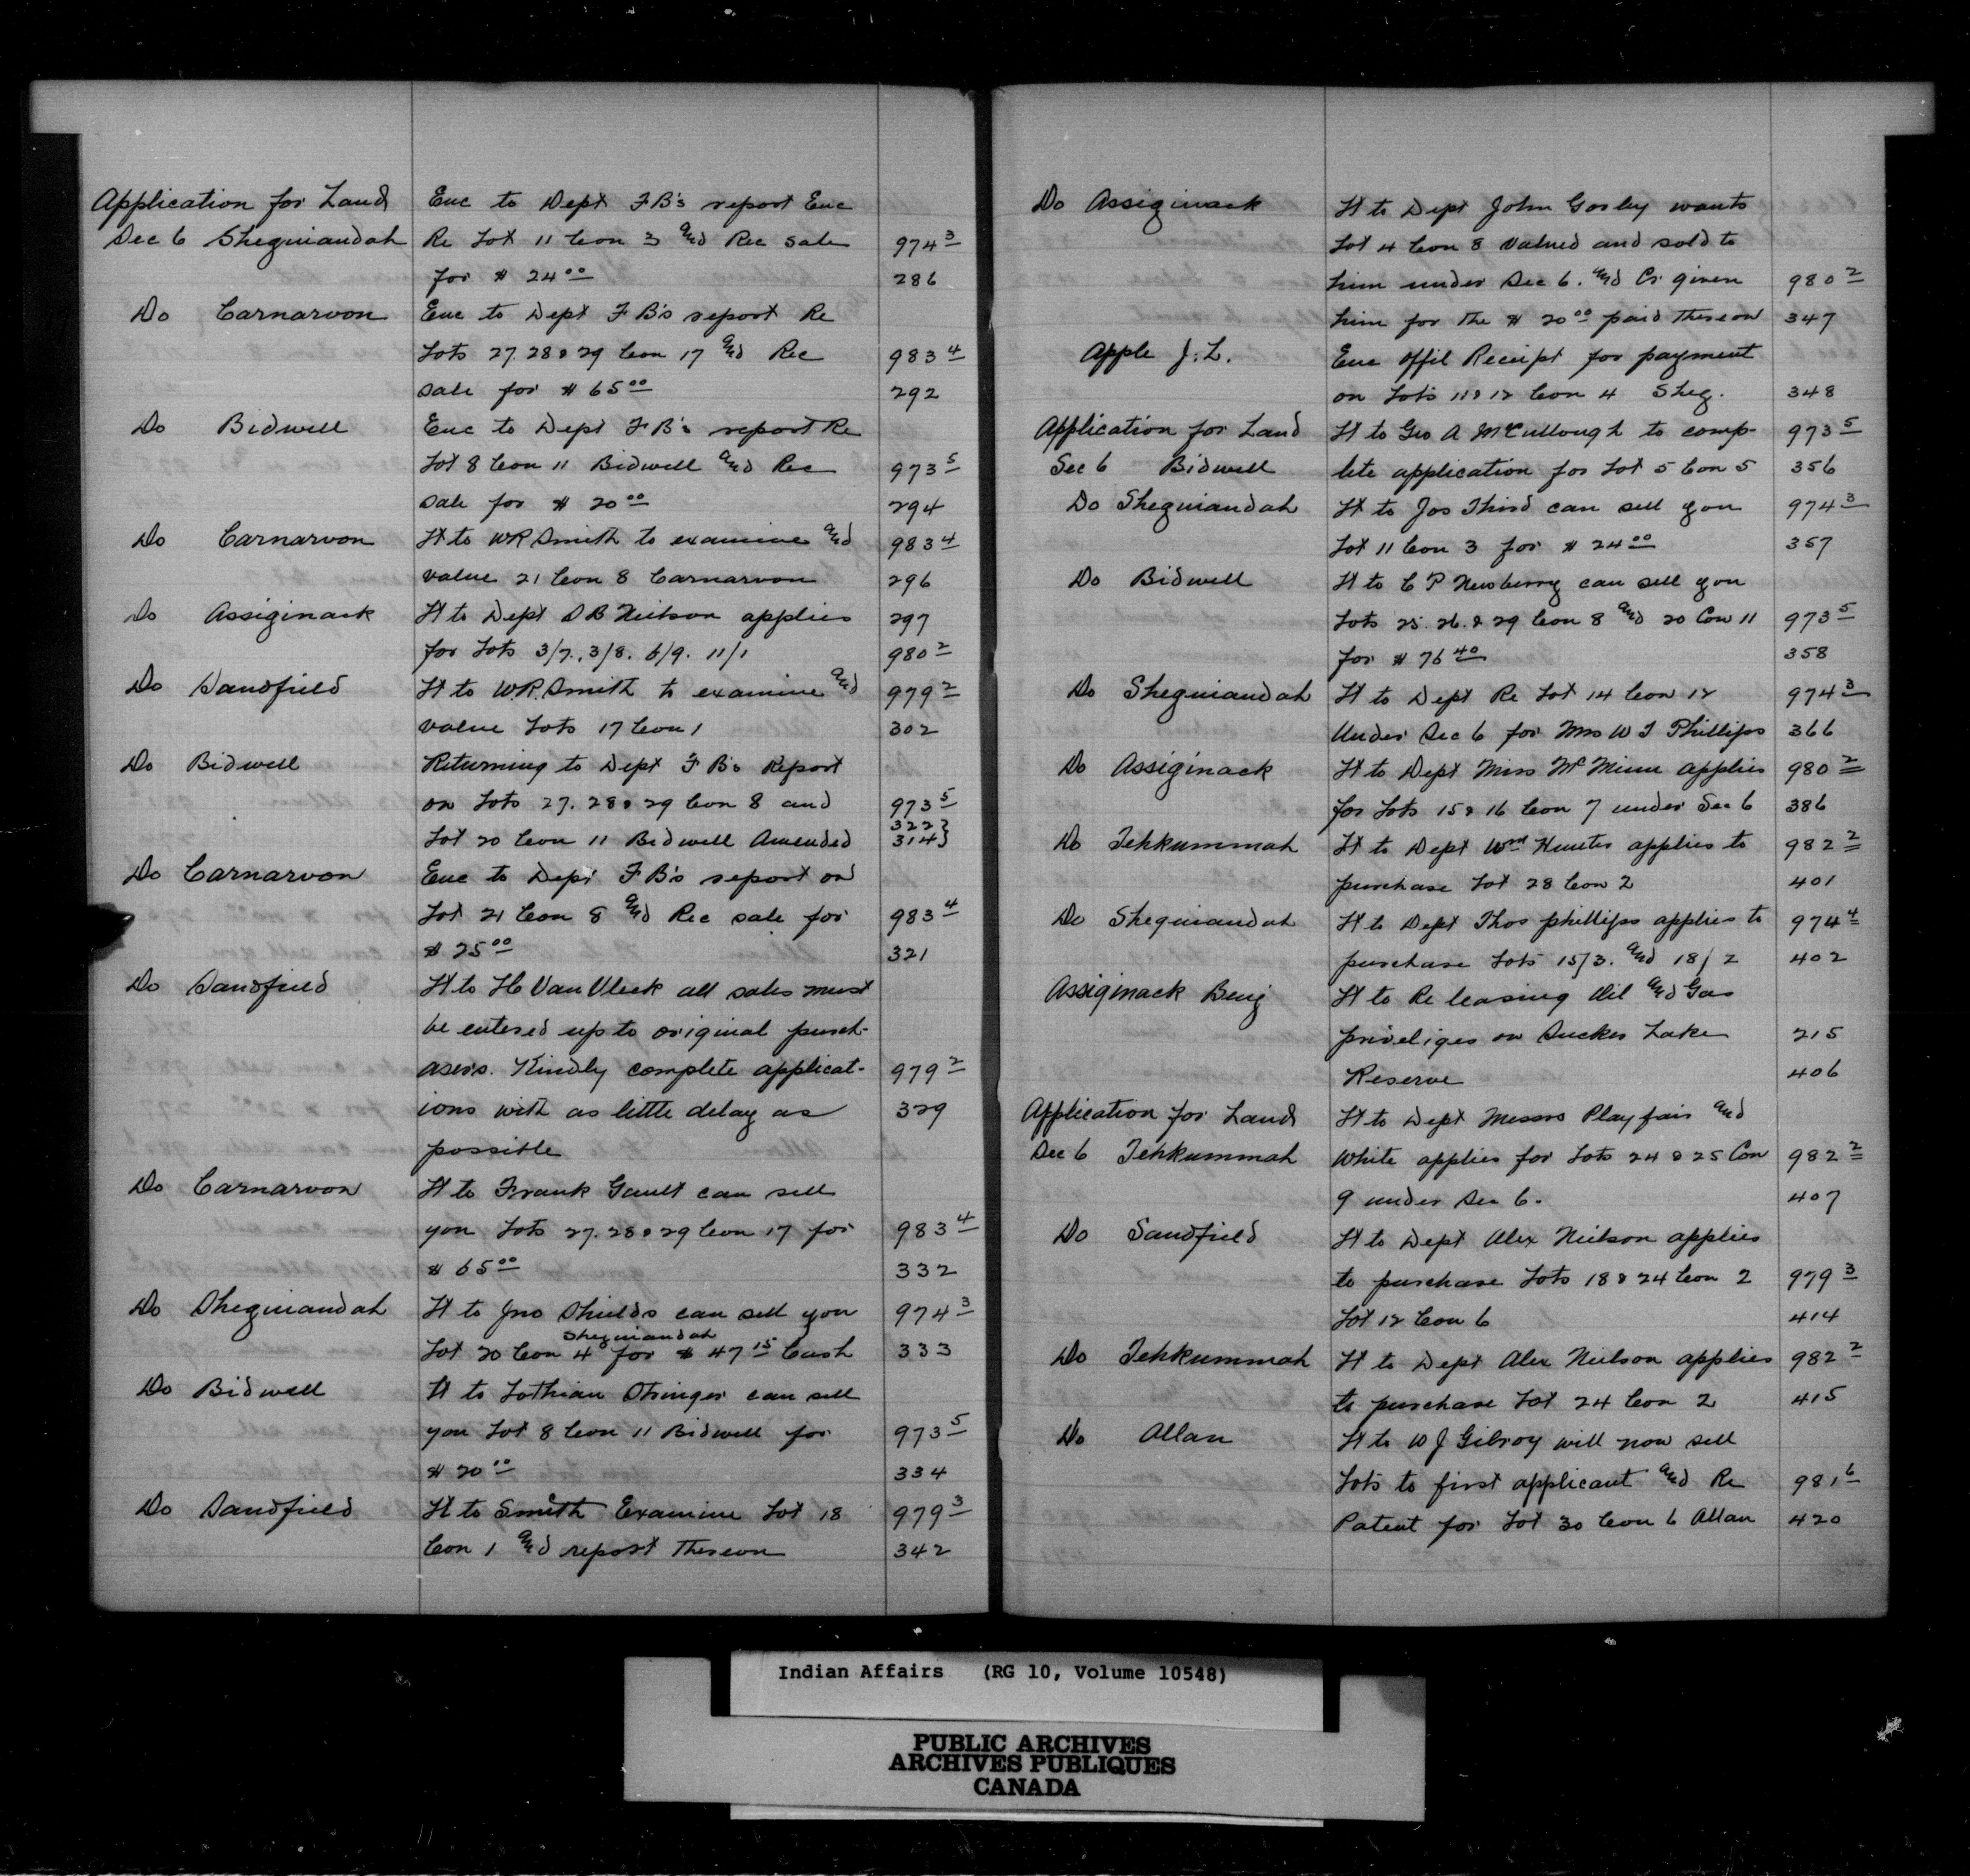 Application for Land Enc to Dept F B's report Enc
Sec 6 Sheguiandah Re Lot 11 Con 3 and Rec sale 974 3
for $ 24 00 286
Do Carnarvon Enc to Dept F B's report Re
Lots 27. 28 & 29 Con 17 and Rec 983 4
sale for $ 65 00 292
Do Bidwell Enc to Dept F B's report Re
Lot 8 Con 11 Bidwell and Rec 973 5
sale for $ 20 00 294
Do Carnarvon Lt to W R Smith to examine and 983 4
value 21 Con 8 Carnarvon 296
Do Assiginack Lt to Dept D B Neilson applies 297
for Lots 3/7., 3/8. 6/9. 11/1 980 2
Do Sandfield Lt to W.R. Smith to examine and 979 2
value Lots 17 Con 1 302
Do Bidwell Returning to Dept F B's Report
on Lots 27. 28 & 29 Con 8 and 973 5
322}
Lot 20 Con 11 Bidwell Amended 314}
Do Carnarvon Enc to Dept F B's report on
Lot 21 Con 8 and Rec sale for 983 4
$ 25 00 321
Do Sandfield Lt to H Van Vleck all sales must
be entered up to original purch-
asers. Kindly complete applicat- 979 2
ions with as little delay as 329
possible
Do Carnarvon Lt to Frank Gault can sell
you Lots 27. 28 & 29 Con 17 for 983 4
$ 65 00 332
Do Sheguiandah Lt to Jno Shields can sell you 974 3
Sheguiandah
Lot 20 Con 4 for $ 47 15 Cash 333
Do Bidwell Lt to Lothian Stringer can sell
you Lot 8 Con 11 Bidwell for 973 5
$ 20 00 334
Do Sandfield Lt to Smith Examine Lot 18 979 3
Con 1 and report thereon 342
Do Assiginack Lt to Dept John Gosley wants
Lot 4 Con 8 valued and sold to
him under Sec 6. and Cr given 980 2
him for the $ 20 00 paid thereon 347
Apple J. L. Enc Offil Receipt for payment
on Lots 11 & 12 Con 4 Sheg. 348
Application for Land Lt to Geo A McCullough to comp- 973 5
Sec 6 Bidwell lete application for Lot 5 Con 5 356
Do Sheguiandah Lt to Jos Third can sell you 974 3
Lot 11 Con 3 for $ 24 00 357
Do Bidwell Lt to C P Newberry can sell you
Lots 25. 26. & 29 Con 8 and 20 Con 11 973 5
for $ 76 40 358
Do Sheguiandah Lt to Dept Re Lot 14 Con 12 974 3
Under Sec 6 for Mrs W J Phillips 366
Do Assiginack Lt to Dept Miss McMinn applies 980 2
for Lots 15 & 16 Con 7 under Sec 6 386
Do Tehkummah Lt to Dept Wm Hunter applies to 982 2
purchase Lot 28 Con 2 401
Do Sheguiandah Lt to Dept Thos phillips applies to 974 4
purchase Lots 15/3. and 18/2 402
Assiginack Benj Lt to Re leasing Oil and Gas
priveliges on Sucker Lake 215
Reserve 406
Application for Land Lt to Dept Messrs Playfair and
Sec 6 Tehkummah White applies for Lots 24 & 25 Con 982 2
9 under Sec 6. 407
Do Sandfield Lt to Dept Alex Neilson applies
to purchase Lots 18 & 24 Con 2 979 3
Lot 12 Con 6 414
Do Tehkummah Lt to Dept Alex Neilson applies 982 2
to purchase Lot 24 Con 2 415
Do Allan Lt to W J Gilroy will now sell
Lots to first applicant and Re 981 6
Patent for Lot 30 Con 6 Allan 420
Indian Affairs (RG 10, Volume 10548)
PUBLIC ARCHIVES
ARCHIVES PUBLIQUES
CANADA